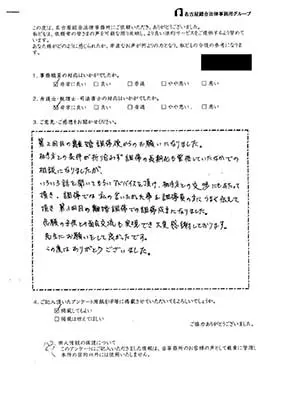 名古屋総合法律事務所グループ
この度は、名古屋総合法律事務所にご依頼いただき、ありがとうございました。
私どもは、依頼者の皆さまの声を可能な限り反映し、より良い法的サービスをご提供するよう努めて
います。
あなた様がどのように感じられたか、率直なお声が何よりの力となり、私どもの今後の参考になりま
す。
1. 事務職員の対応はいかがでしたか。
☑非常に良い □良い □普通 □やや悪い □悪い
2. 弁護士・税理士・司法書士の対応はいかがでしたか。
☑非常に良い □良い □普通 □やや悪い □悪い
3. ご意見・ご感想をお聞かせください。
第2回目の離婚調停後からのお願いになりました。
相手方との条件が折り合わず調停の長期化も覚悟していたなかでの
相談でしたが、
いろいろ話を聞いてもらいアドバイスを頂き、相手方との交渉にもあたって
頂き、調停では私の言いたい事を調停員の方にうまく伝えて
頂き第4回目の離婚調停での調停成立になりました。
念願の子供との面会交流も実現でき大変感謝しております。
先生にお願いをして良かったです。
この度はありがとうございました。
4. ご記入頂いたアンケート用紙をHP等に掲載させていただいてもよろしいでしょうか。
☑掲載してもよい
□掲載は控えてほしい
ご協力ありがとうございました。
個人情報の保護について
このアンケートにご記入いただきました情報は、当事務所のお客様の声として厳重に管理し
本件の目的以外には使用いたしません。